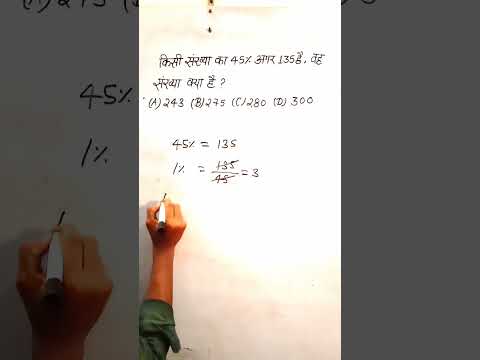 किसी संख्या का 45% अगर 135 है, वह
संख्या क्या है ?
(A) 243 (B) 275 (C) 280 (D) 300
45% = 135
1% = 135/45 = 3